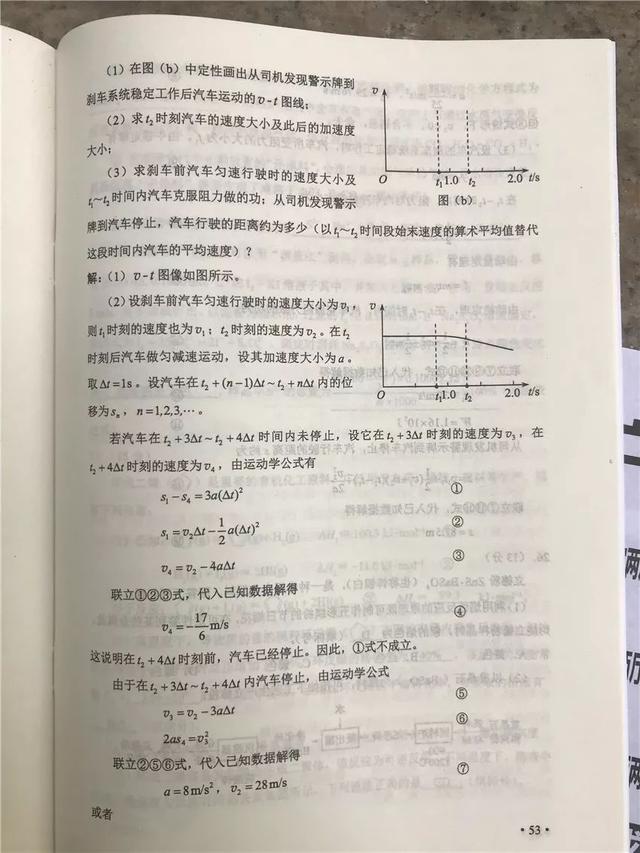 (1)在图(b)中定性画出从司机发现警示牌到
刹车系统稳定工作后汽车运动的v-t图线;
(2)求t₂时刻汽车的速度大小及此后的加速度
大小;
(3)求刹车前汽车匀速行驶时的速度大小及
t₁~t₂时间内汽车克服阻力做的功;从司机发现警示
牌到汽车停止,汽车行驶的距离约为多少(以t₁~t₂时间段始末速度的算术平均值替代
这段时间内汽车的平均速度)?
v
O t₁ 1.0 t₂ 2.0 t/s
图(b)
解:(1)v-t图像如图所示。
(2)设刹车前汽车匀速行驶时的速度大小为v₁,
则t₁时刻的速度也为v₁;t₂时刻的速度为v₂。在t₂
时刻后汽车做匀减速运动,设其加速度大小为a。
取Δt=1s。设汽车在t₂+(n-1)Δt~t₂+nΔt内的位
移为sₙ,n=1,2,3,…。
v
O t₁ 1.0 t₂ 2.0 t/s
若汽车在t₂+3Δt~t₂+4Δt时间内未停止,设它在t₂+3Δt时刻的速度为v₃,在
t₂+4Δt时刻的速度为v₄,由运动学公式有
s₁-s₄=3a(Δt)² ①
s₁=v₂Δt-1/2a(Δt)² ②
v₄=v₂-4aΔt ③
联立①②③式,代入已知数据解得
v₄=-17/6m/s ④
这说明在t₂+4Δt时刻前,汽车已经停止。因此,①式不成立。
由于在t₂+3Δt~t₂+4Δt内汽车停止,由运动学公式
v₃=v₂-3aΔt ⑤
2as₄=v₃² ⑥
联立②⑤⑥式,代入已知数据解得
a=8m/s²,v₂=28m/s ⑦
或者
·53·